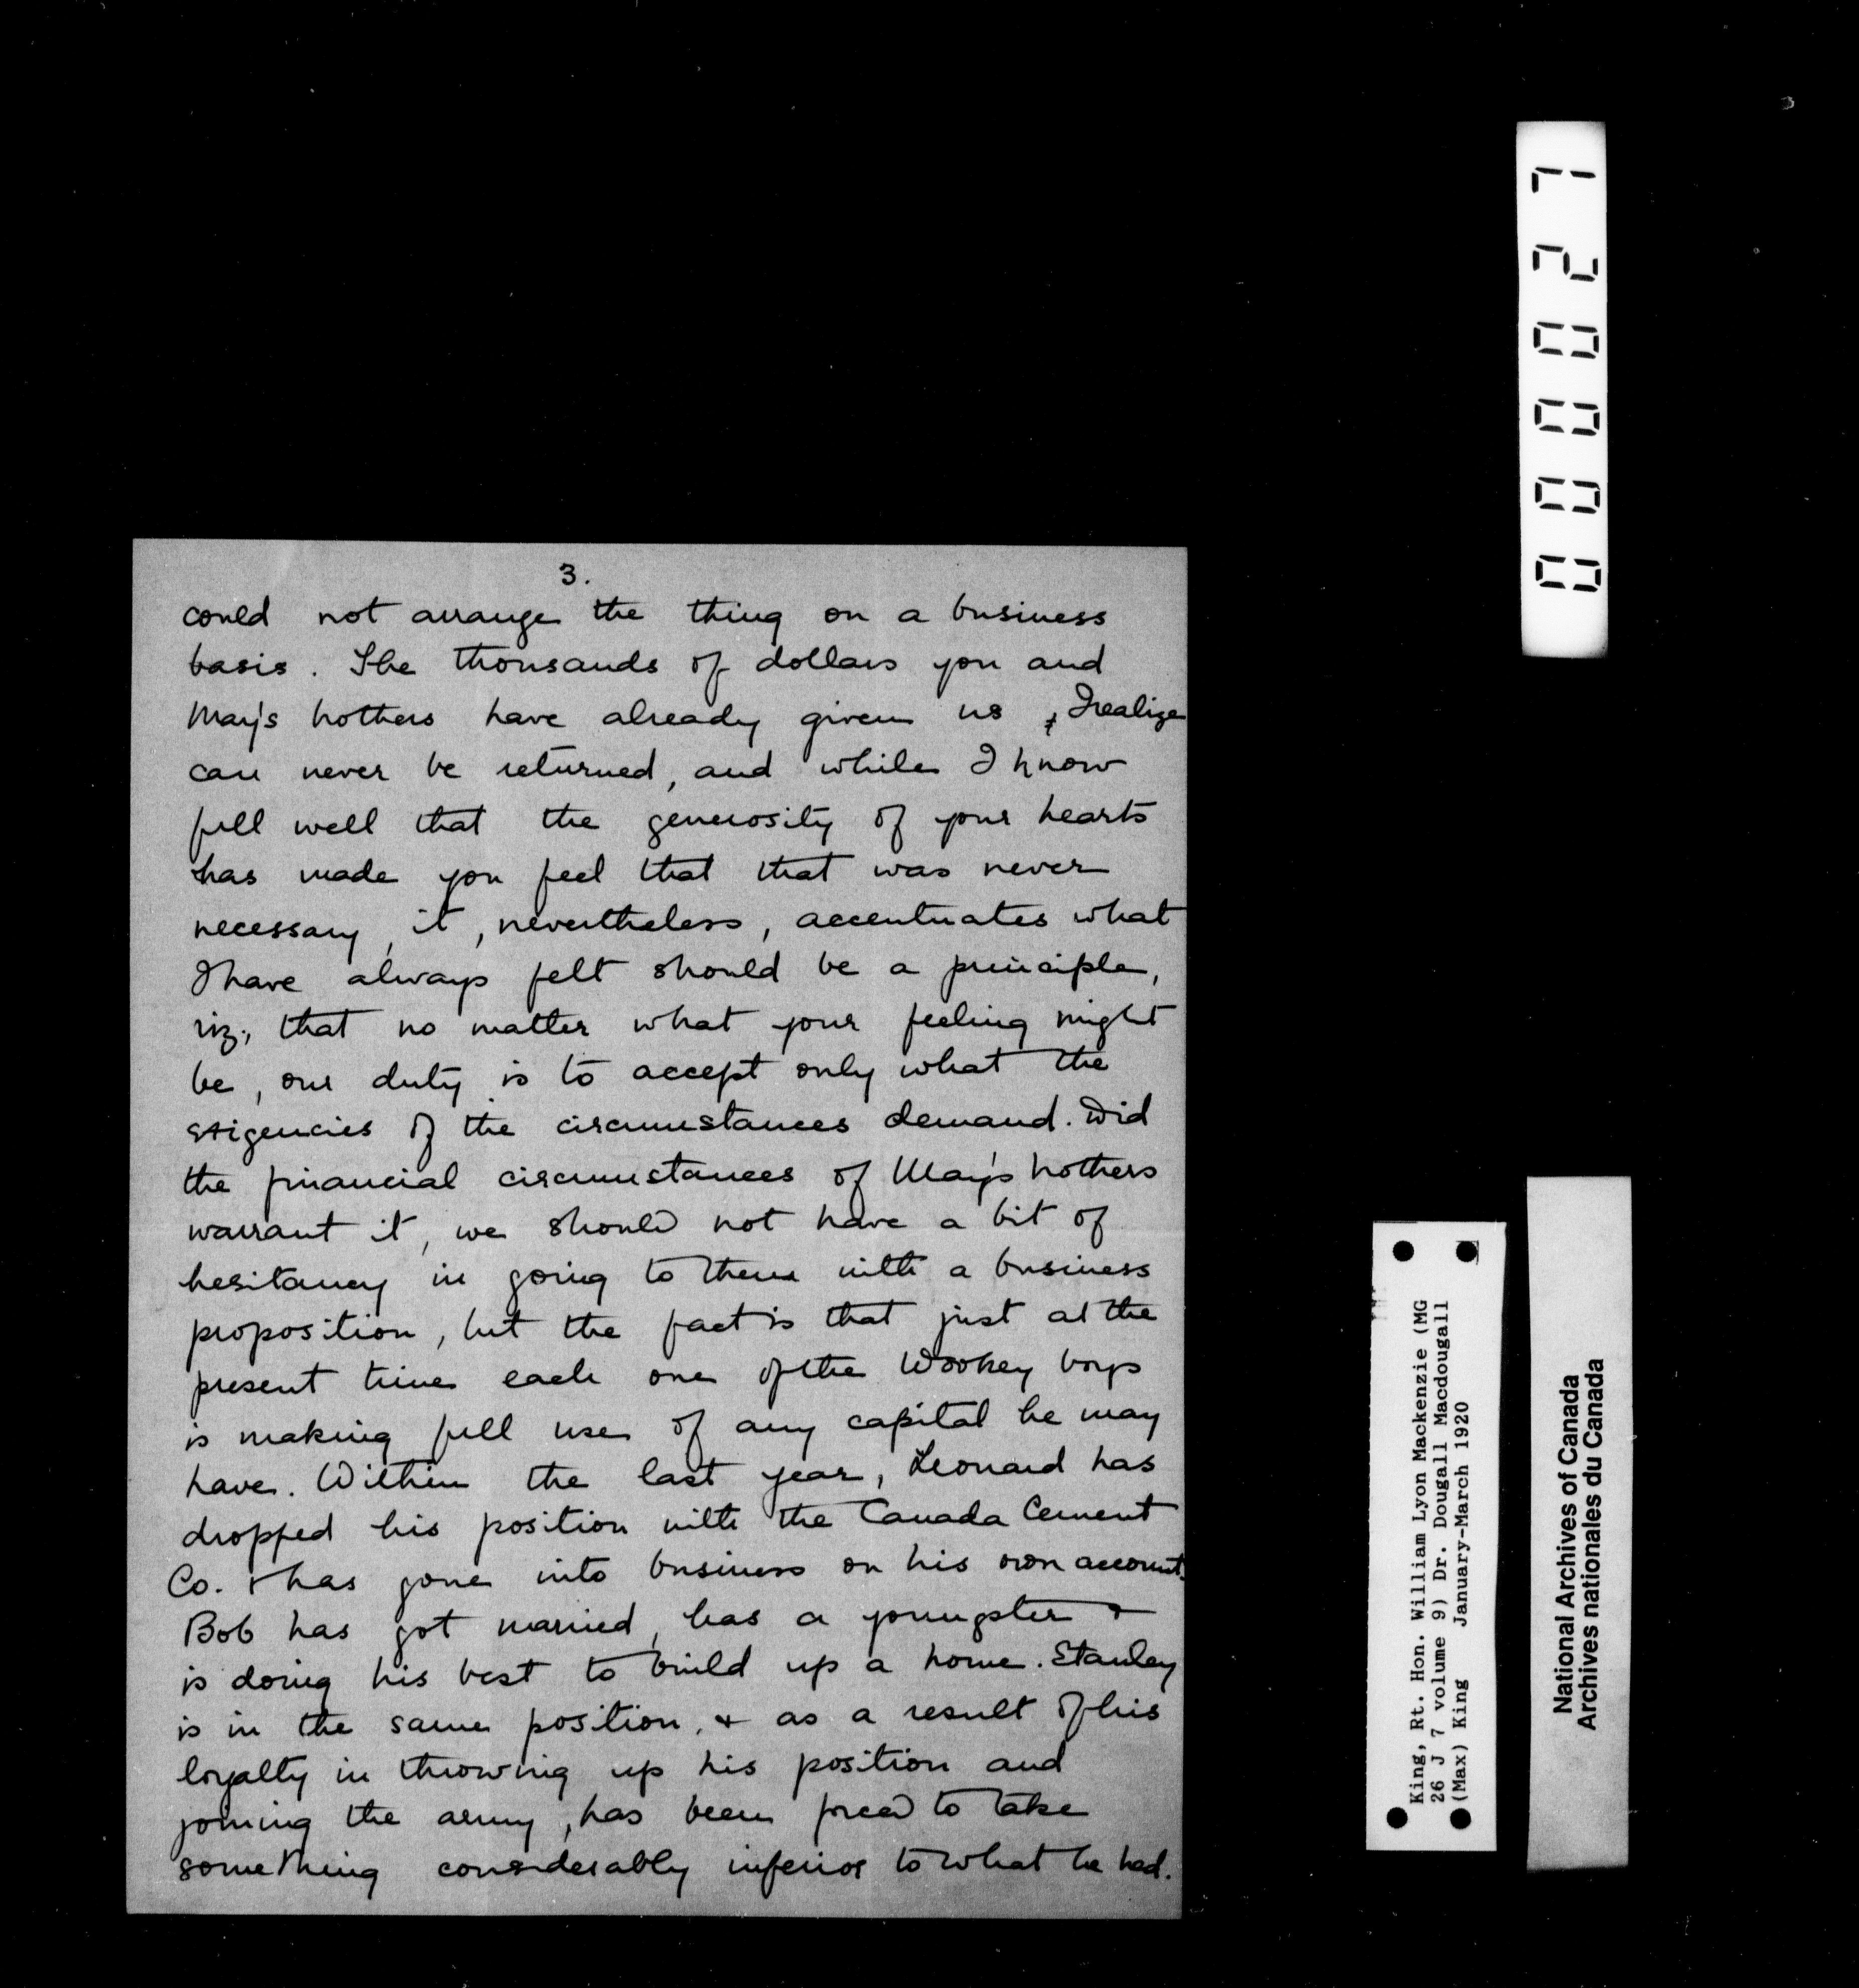 3.
could not arrange the thing on a business
basis. The thousands of dollars you and
May's brothers have already given us, I realize
can never be returned, and while I know
full well that the generosity of your hearts
has made you feel that that was never
necessary, it, nevertheless, accentuates what
I have always felt should be a principle,
viz., that no matter what your feeling might
be, our duty is to accept only what the
exigencies of the circumstances demand. Did
the financial circumstances of May's brothers
warrant it, we should not have a bit of
hesitancy in going to them with a business
proposition, but the fact is that just at the
present time each one of the Wookey boys
is making full use of any capital he may
have. Within the last year, Leonard has
dropped his position with the Canada Cement
Co. & has gone into business on his own account.
Bob has got married, has a youngster &
is doing his best to build up a home. Stanley
is in the same position, & as a result of his
loyalty in throwing up his position and
joining the army, has been forced to take
something considerably inferior to what he had.
000027
King, Rt. Hon. William Lyon Mackenzie (MG
26 J 7 volume 9) Dr. Dougall Macdougall
(Max) King January-March 1920
National Archives of Canada
Archives nationales du Canada